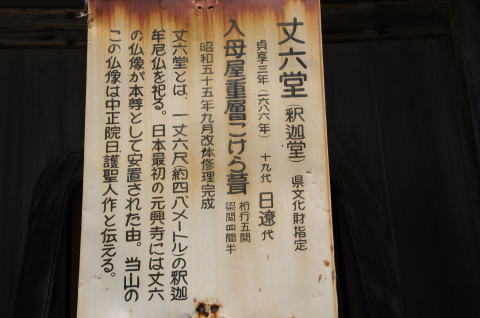 丈六堂(釈迦堂) 県文化財指定
貞享三年(一六八六年) 十九代 日遼代
入母屋重層こけら葺 桁行五間 梁間四間半
昭和五十五年九月改体修理完成
丈六とは、一丈六尺(約四・八メートル)の釈迦
牟尼仏を祀る。日本最初の元興寺には丈六
の仏像が本尊として安置された由。当山の
この仏像は中正院日護聖人作と伝える。